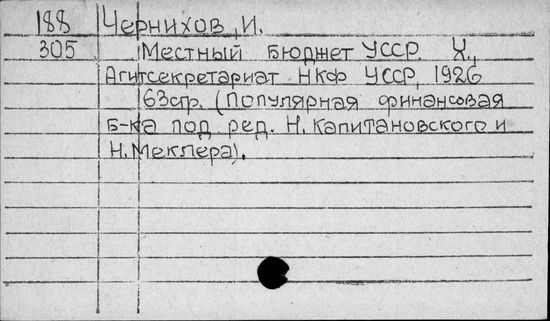 188 Чернихов, И.
305 Местный бюджет УССР. Х.,
Агитсекретариат НКФ УССР, 1926
63стр. (Популярная финансовая
б-ка под ред. Н. Капитановского и
Н. Меклера).